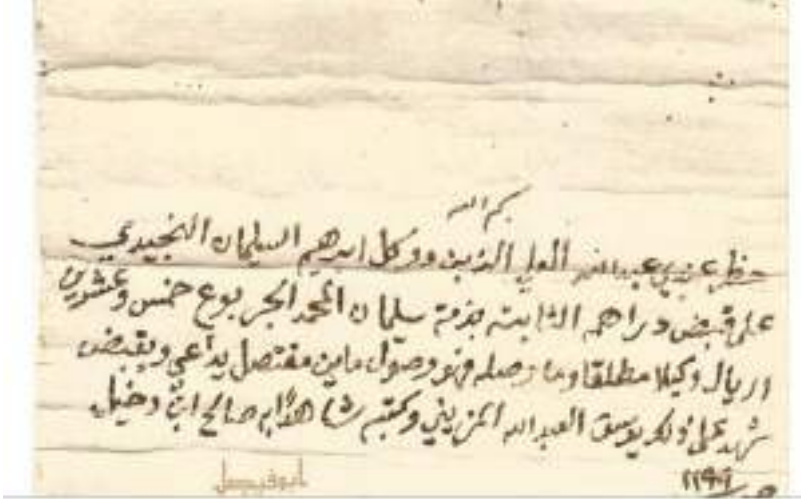 بسم الله
حظر عندي عبدالله العلي الزبن ووكل ابرهيم السليمان النجيدي
على قبض دراهمه الثابته بذمة سليمان المحمد الجربوع خمس وعشرين
اريال وكيلا مطلقا وما وصله فهو وصول ماين مفتصل يداعي ويقبض
شهد على ذلك يوسف العبدالله المزيني وكتبه شاهدًا به صالح ابن دخيل
ابو فيصل